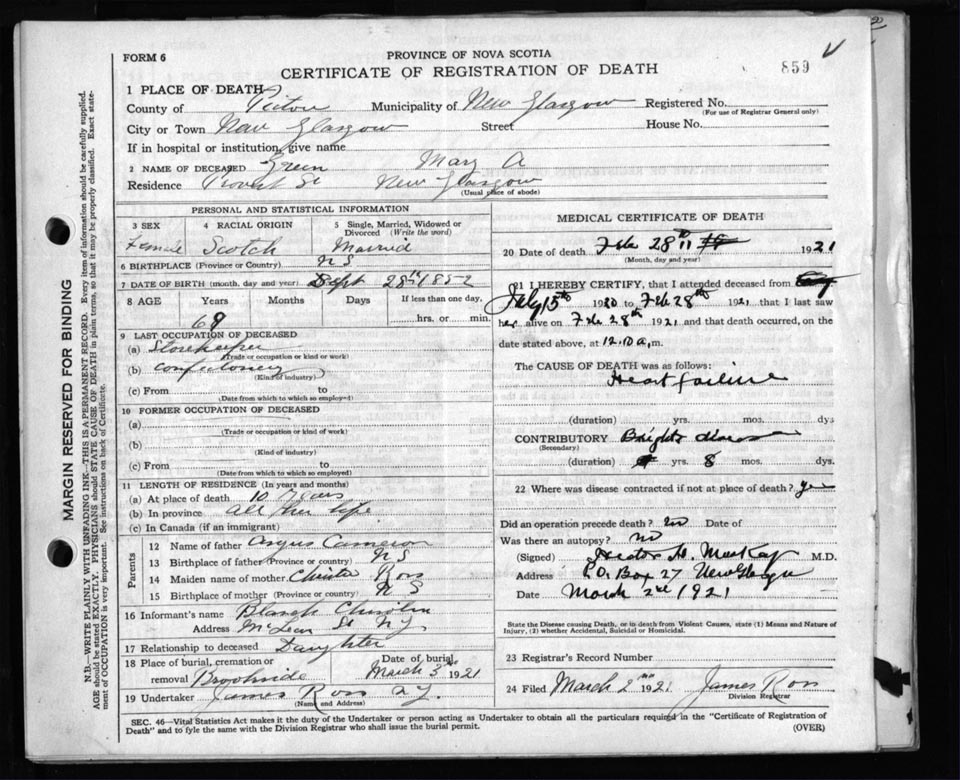 FORM 6
PROVINCE OF NOVA SCOTIA
CERTIFICATE OF REGISTRATION OF DEATH
859
1 PLACE OF DEATH
County of Pictou Municipality of New Glasgow Registered No.
(For use of Registrar General only)
City or Town New Glasgow Street House No.
If in hospital or institution, give name
2 NAME OF DECEASED Green Mary A
Residence Provost St New Glasgow
(Usual place of abode)
PERSONAL AND STATISTICAL INFORMATION
3 SEX 4 RACIAL ORIGIN 5 Single, Married, Widowed or Divorced (Write the word)
Female Scotch Married
6 BIRTHPLACE (Province or Country) N S
7 DATE OF BIRTH (month, day and year) Sept 28th 1852
8 AGE Years Months Days If less than one day,
68 hrs. or min.
9 LAST OCCUPATION OF DECEASED
(a) Storekeeper
(Trade or occupation or kind or work)
(b) Confectionery
(Kind of industry)
(c) From to
(Date from which to which so employed)
10 FORMER OCCUPATION OF DECEASED
(a)
(Trade or occupation or kind of work)
(b)
(Kind of industry)
(c) From to
(Date from which to which so employed)
11 LENGTH OF RESIDENCE (In years and months)
(a) At place of death 10 Years
(b) In province all her life
(c) In Canada (if an immigrant)
Parents
12 Name of father Angus Cameron
13 Birthplace of father (Province or country) N S
14 Maiden name of mother Christie Ross
15 Birthplace of mother (Province or country) N S
16 Informant's name Blanch
Address McLean St N.G.
17 Relationship to deceased Daughter
18 Place of burial, cremation or removal Brookside Date of burial March 3rd 1921
19 Undertaker James Ross N.G.
(Name and Address)
MEDICAL CERTIFICATE OF DEATH
20 Date of death Feb 28th 1921
(Month, day and year)
21 I HEREBY CERTIFY, that I attended deceased from
July 15th 1920 to Feb 28th 1921 that I last saw
her alive on Feb 28th 1921 and that death occurred, on the
date stated above, at 12.10 a,m.
The CAUSE OF DEATH was as follows:
Heart failure
(duration) yrs. mos. dys
CONTRIBUTORY Brights disease
(Secondary)
(duration) yrs. 8 mos. dys.
22 Where was disease contracted if not at place of death? yes
Did an operation precede death? no Date of
Was there an autopsy? no
(Signed) Hector MacKay M.D.
Address P.O. Box 27 New Glasgow
Date March 2nd 1921
State the Disease causing Death, or in death from Violent Causes, state (1) Means and Nature of
Injury, (2) whether Accidental, Suicidal or Homicidal.
23 Registrar's Record Number
24 Filed March 2nd 1921 James Ross
Division Registrar
SEC. 46—Vital Statistics Act makes it the duty of the Undertaker or person acting as Undertaker to obtain all the particulars required in the "Certificate of Registration of
Death" and to fyle the same with the Division Registrar who shall issue the burial permit. (OVER)
MARGIN RESERVED FOR BINDING
N.B.—WRITE PLAINLY WITH UNFADING INK—THIS IS A PERMANENT RECORD. Every item of information should be carefully supplied.
AGE should be stated EXACTLY. PHYSICIANS should STATE CAUSE OF DEATH in plain terms, so that it may be properly classified. Exact state-
ment of OCCUPATION is very important. See instructions on back of Certificate.